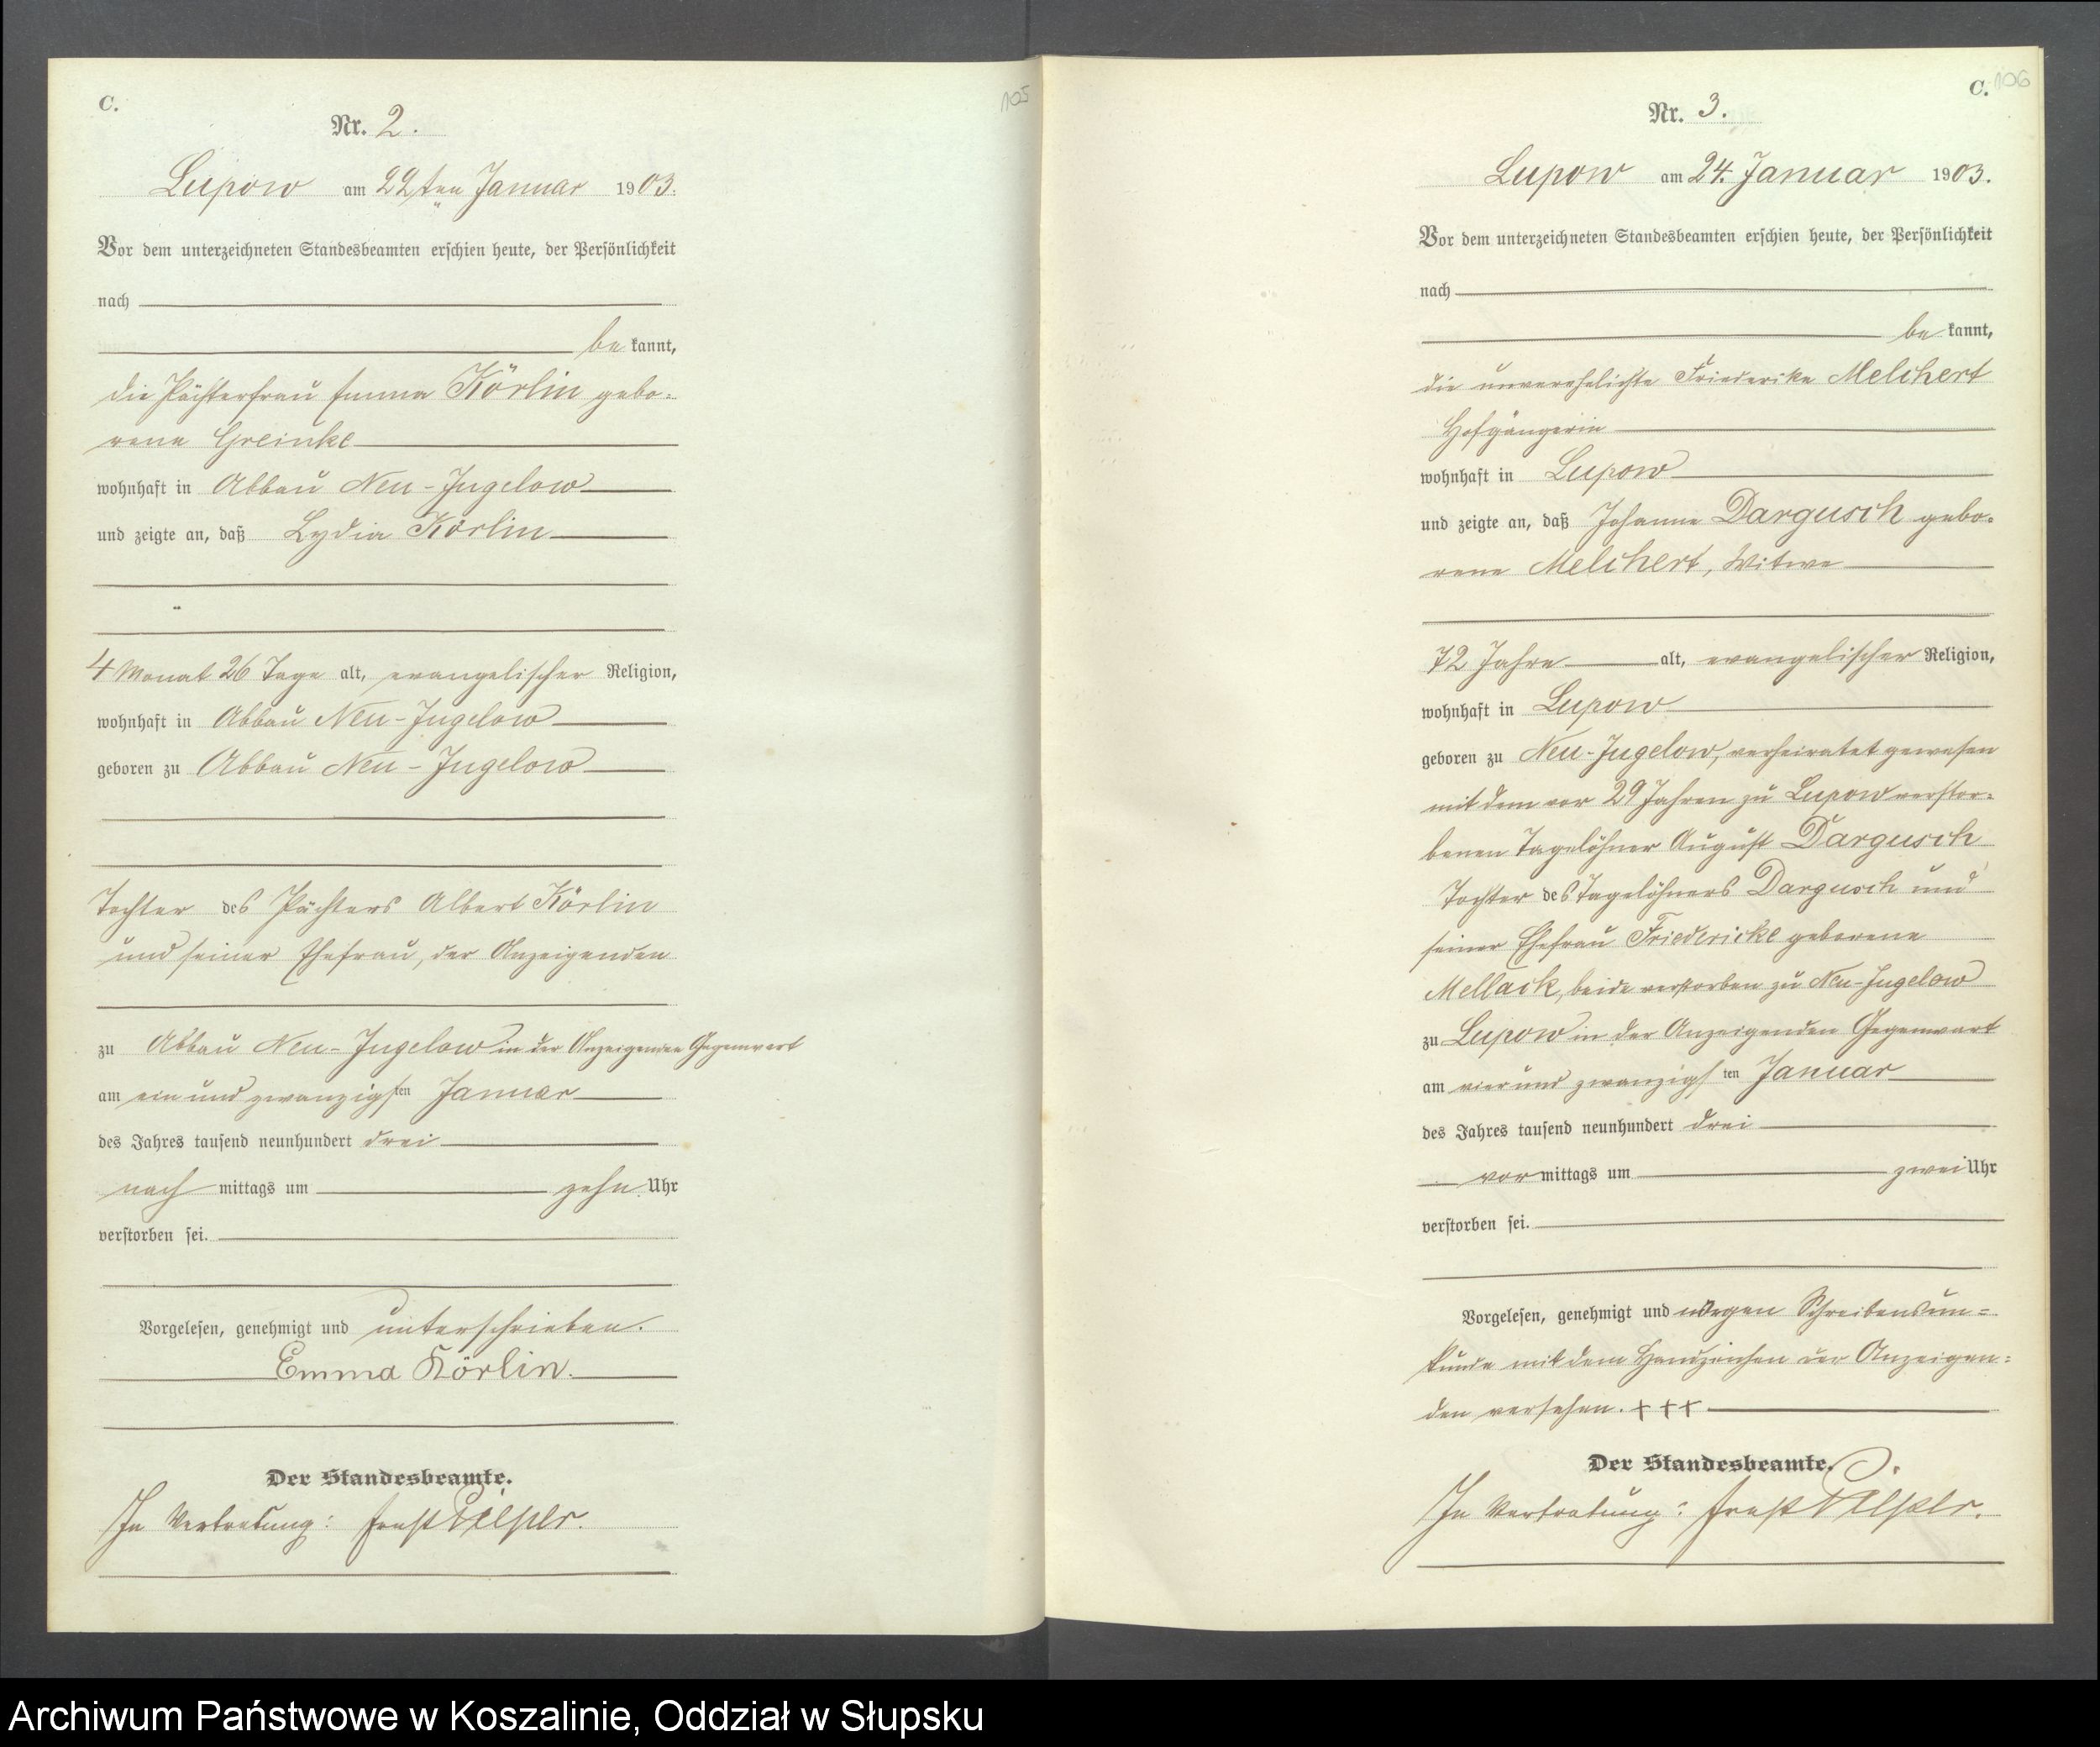 C.
105
Nr. 2.
Lupow am 22ten Januar 1903.
Vor dem unterzeichneten Standesbeamten erschien heute, der Persönlichkeit
nach
be kannt,
die Pächterfrau Emma Körlin gebo-
rene Greinke
wohnhaft in Abbau Neu-Jugelow
und zeigte an, daß Lydia Körlin
4 Monat 26 Tage alt, evangelischer Religion,
wohnhaft in Abbau Neu-Jugelow
geboren zu Abbau Neu-Jugelow
Tochter des Pächters Albert Körlin
und seiner Ehefrau, der Anzeigenden
zu Abbau Neu-Jugelow in der Anzeigenden Gegenwart
am ein und zwanzigsten Januar
des Jahres tausend neunhundert drei
nach mittags um zehn Uhr
verstorben sei.
Vorgelesen, genehmigt und unterschrieben.
Emma Körlin.
Der Standesbeamte.
In Vertretung: Ernst
C. 106
Nr. 3.
Lupow am 24. Januar 1903.
Vor dem unterzeichneten Standesbeamten erschien heute, der Persönlichkeit
nach
be kannt,
die unverehelichte Friederike Melchert
Hofgängerin
wohnhaft in Lupow
und zeigte an, daß Johanne Dargusch gebo-
rene Melchert, Witwe
72 Jahre alt, evangelischer Religion,
wohnhaft in Lupow
geboren zu Neu-Jugelow, verheiratet gewesen
mit dem vor 29 Jahren zu Lupow verstor-
benen Tagelöhner August Dargusch
Tochter des Tagelöhners Dargusch und
seiner Ehefrau Friedericke geborene
Mellack, beide verstorben zu Neu-Jugelow
zu Lupow in der Anzeigenden Gegenwart
am vier und zwanzigsten Januar
des Jahres tausend neunhundert drei
vor mittags um zwei Uhr
verstorben sei.
Vorgelesen, genehmigt und wegen Schreibensun-
kunde mit dem Handzeichen der Anzeigen-
den versehen. +++
Der Standesbeamte.
In Vertretung: Ernst
Archiwum Państwowe w Koszalinie, Oddział w Słupsku